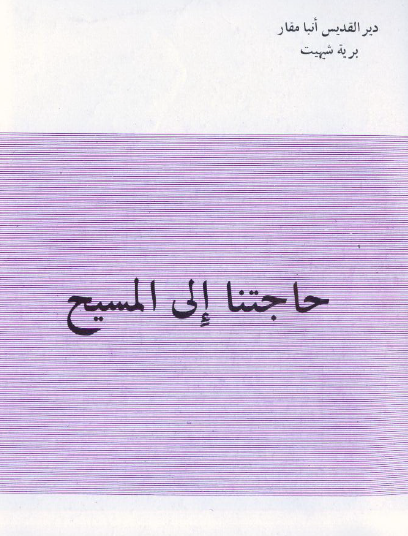 دير القديس أنبا مقار
برية شيهيت
حاجتنا إلى المسيح